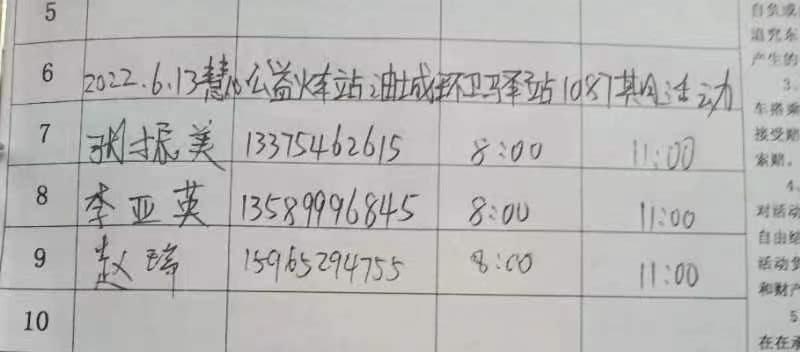 5
6 2022.6.13慧心公益火车站油城环卫驿站1087期活动
7 张振美 13375462615 8:00 11:00
8 李亚英 13589996845 8:00 11:00
9 赵瑞 15965294755 8:00 11:00
10
自负或
追究东
产生的
3.
车搭乘
接受赔
索赔。
4.
对活动
自由结
活动货
和财产
5
在在承